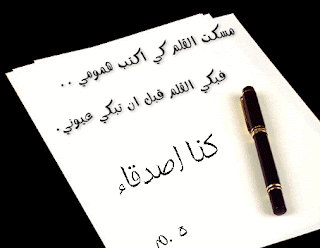 مسكت القلم كي اكتب همومي ..
فبكي القلم قبل ان تبكي عيوني.
كنا اصدقاء